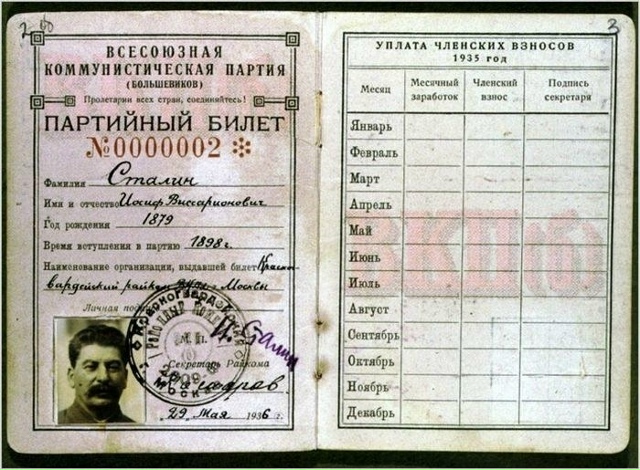 ВСЕСОЮЗНАЯ
КОММУНИСТИЧЕСКАЯ ПАРТИЯ
(БОЛЬШЕВИКОВ)
Пролетарии всех стран, соединяйтесь!
ПАРТИЙНЫЙ БИЛЕТ
№0000002
Фамилия Сталин
Имя и отчество Иосиф Виссарионович
Год рождения 1879
Время вступления в партию 1898 г.
Наименование организации, выдавшей билет Красно
вардейский райком г. Москвы
Личная
И. Сталин
М. П.
Секретарь Райкома
29 Мая 1936 г.
3
УПЛАТА ЧЛЕНСКИХ ВЗНОСОВ
1935 год
Месяц Месячный заработок Членский взнос Подпись секретаря
Январь
Февраль
Март
Апрель
Май
Июнь
Июль
Август
Сентябрь
Октябрь
Ноябрь
Декабрь
ВКП(б)